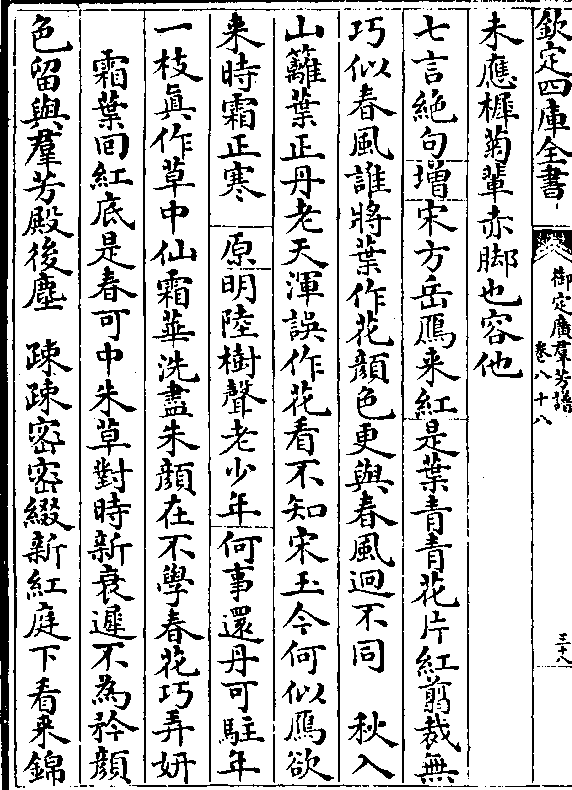 欽定四庫全書
御定廣羣芳譜
卷八十八
三十八
未應榧菊輩赤脚也容他
七言絶句增宋方岳鴈来紅是葉青青花片紅翦裁無
巧似春風誰將葉作花顔色更與春風迥不同　秋入
山籬葉正丹老天渾誤作花看不知宋玉今何似鴈欲
来時霜正寒　原明陸樹聲老少年何事還丹可駐年
一枝眞作草中仙霜華洗盡朱顔在不學春花巧弄妍
霜葉回紅底是春可中朱草對時新衰遲不為矜顔
色留與羣芳殿後塵　疎疎密密綴新紅庭下看来錦